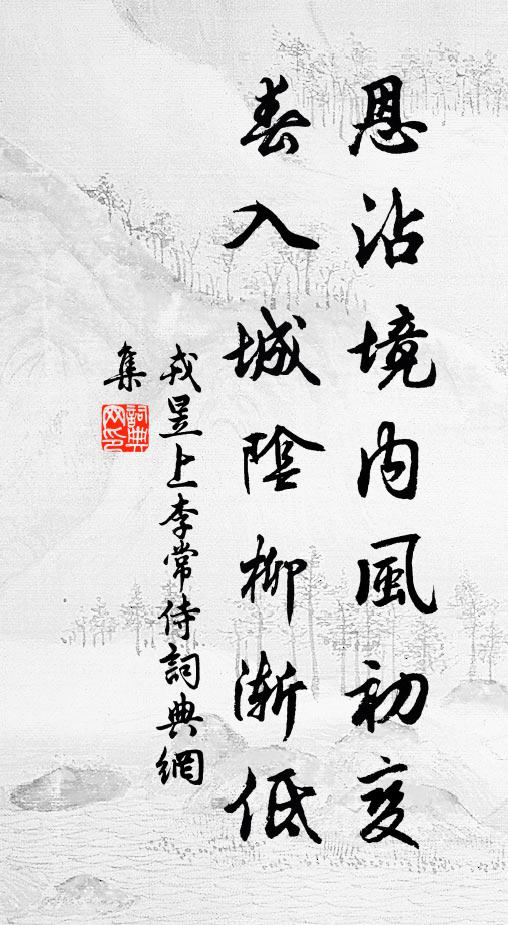 恩沾境内風初変
春入城陰柳漸低
戎昱上李常侍詞典網
集
詞典
网印